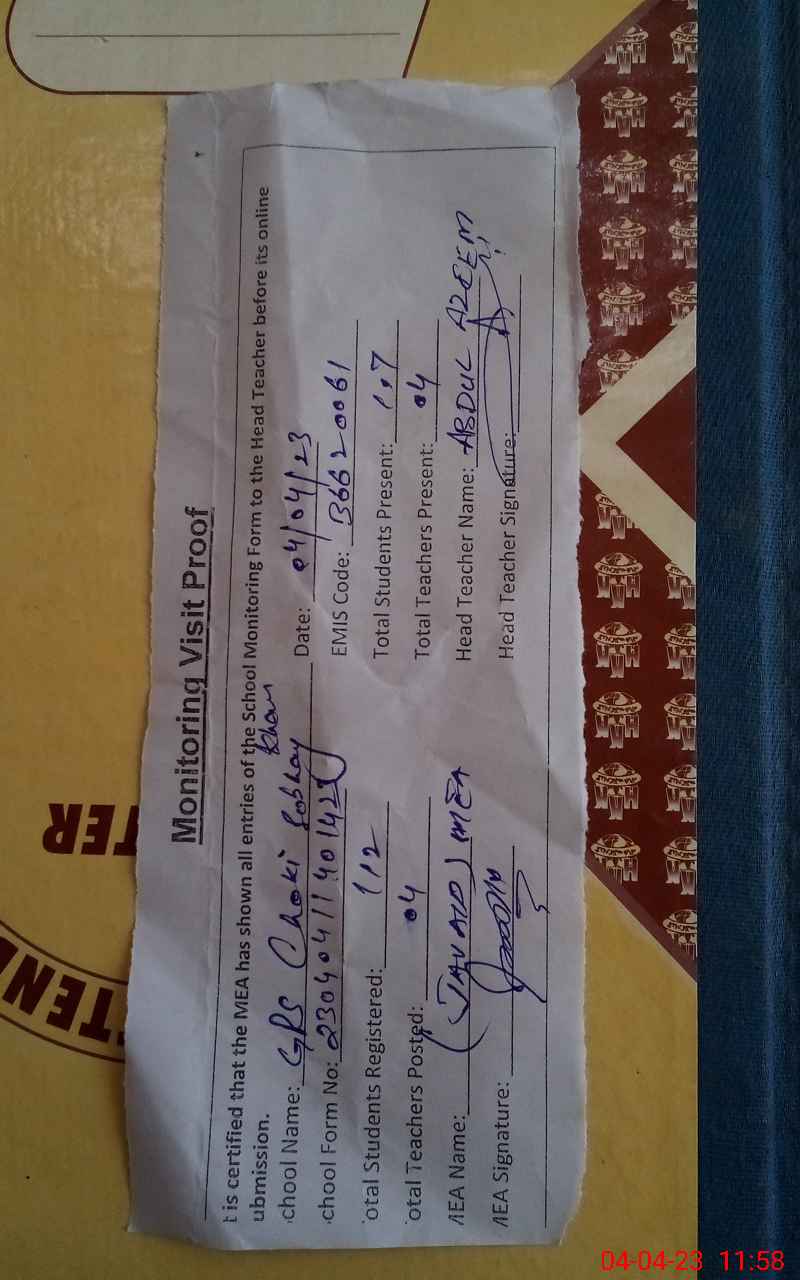 Monitoring Visit Proof
t is certified that the MEA has shown all entries of the School Monitoring Form to the Head Teacher before its online
ubmission.
chool Name: GPS Choki Sobhay Khan Date: 04/04/23
chool Form No: EMIS Code: 36620061
otal Students Registered: 112 Total Students Present: 107
otal Teachers Posted: 04 Total Teachers Present: 04
MEA Name: (JAVAID) MEA Head Teacher Name: ABDUL AZEEM
MEA Signature: Head Teacher Signature:
TER
TEN
04-04-23 11:58